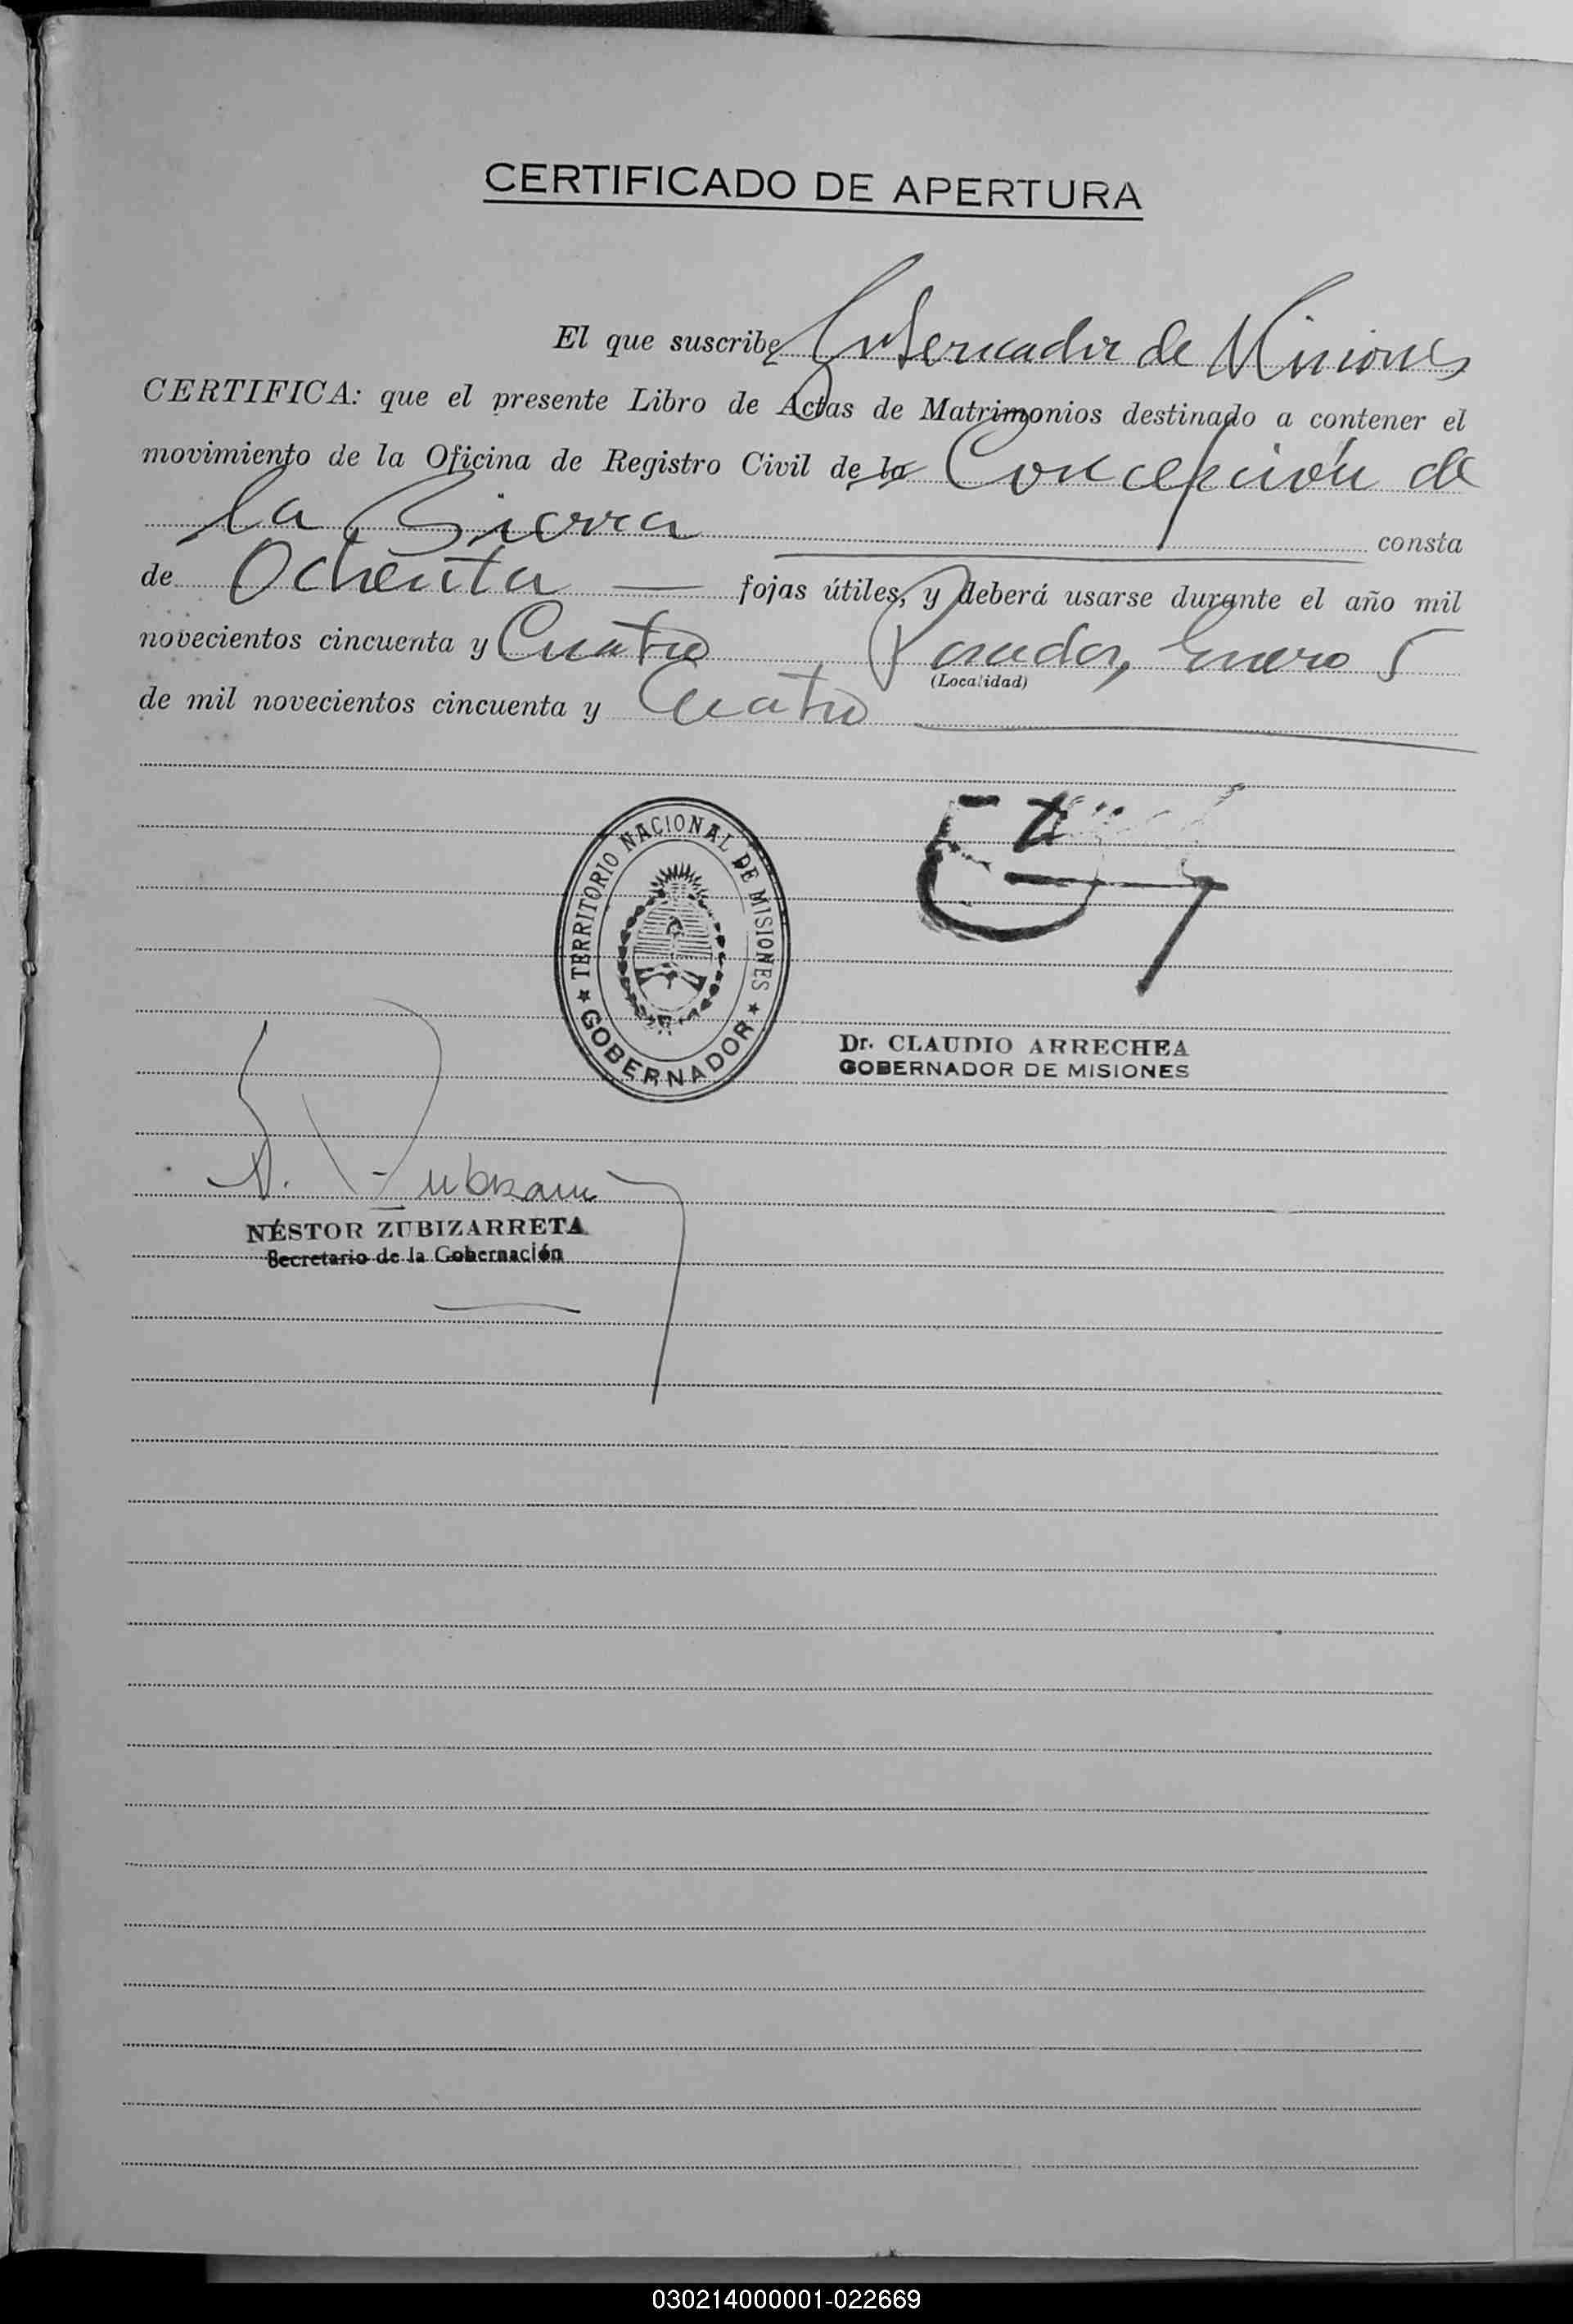 CERTIFICADO DE APERTURA
El que suscribe Gobernador de Misiones
CERTIFICA: que el presente Libro de Actas de Matrimonios destinado a contener el
movimiento de la Oficina de Registro Civil de la Concepción de
la Sierra consta
de Ochenta — fojas útiles, y deberá usarse durante el año mil
novecientos cincuenta y Cuatro Posadas, Enero 5
(Localidad)
de mil novecientos cincuenta y Cuatro
TERRITORIO NACIONAL DE MISIONES
GOBERNADOR
Dr. CLAUDIO ARRECHEA
GOBERNADOR DE MISIONES
NÉSTOR ZUBIZARRETA
Secretario de la Gobernación
030214000001-022669